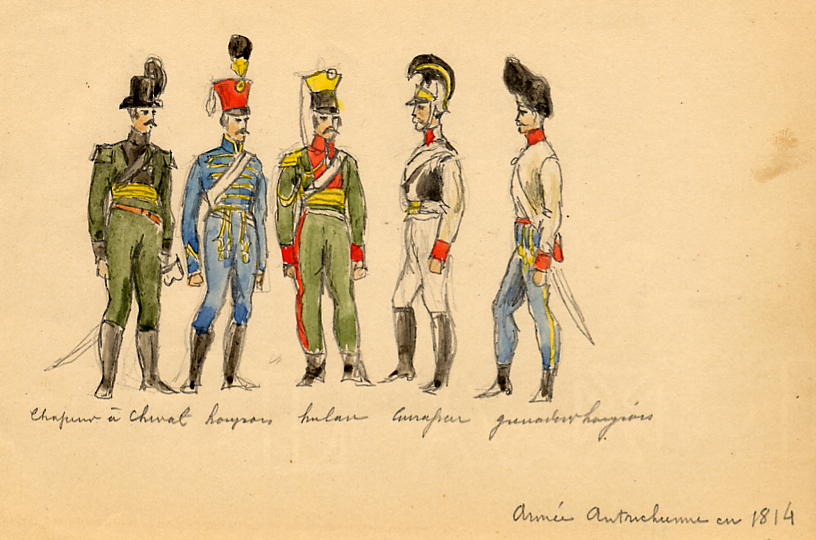 Chasseur à Cheval hongrois hulan Cuirassier grenadier hongrois
Armée Autrichienne en 1814